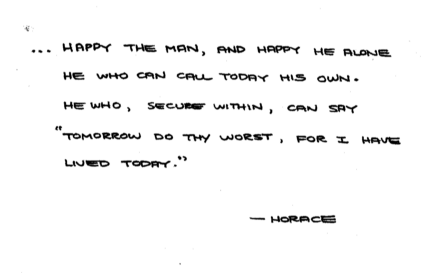 ... HAPPY THE MAN, AND HAPPY HE ALONE
HE WHO CAN CALL TODAY HIS OWN.
HE WHO, SECURE WITHIN, CAN SAY
"TOMORROW DO THY WORST, FOR I HAVE
LIVED TODAY."
— HORACE